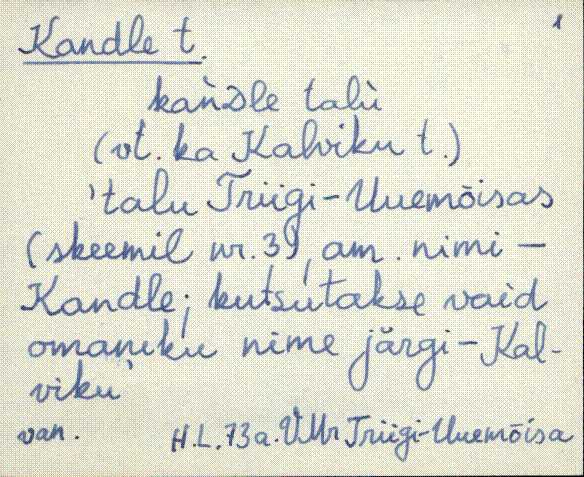 1
Kandle t.
kaǹDle talù
(vt. ka Kalviku t.)
'talu Triigi-Uuemõisas
(skeemil nr. 39, am. nimi –
Kandle; kutsutakse vaid
omaniku nime järgi – Kal-
viku'
van. H.L. 73a. VMr Triigi-Uuemõisa